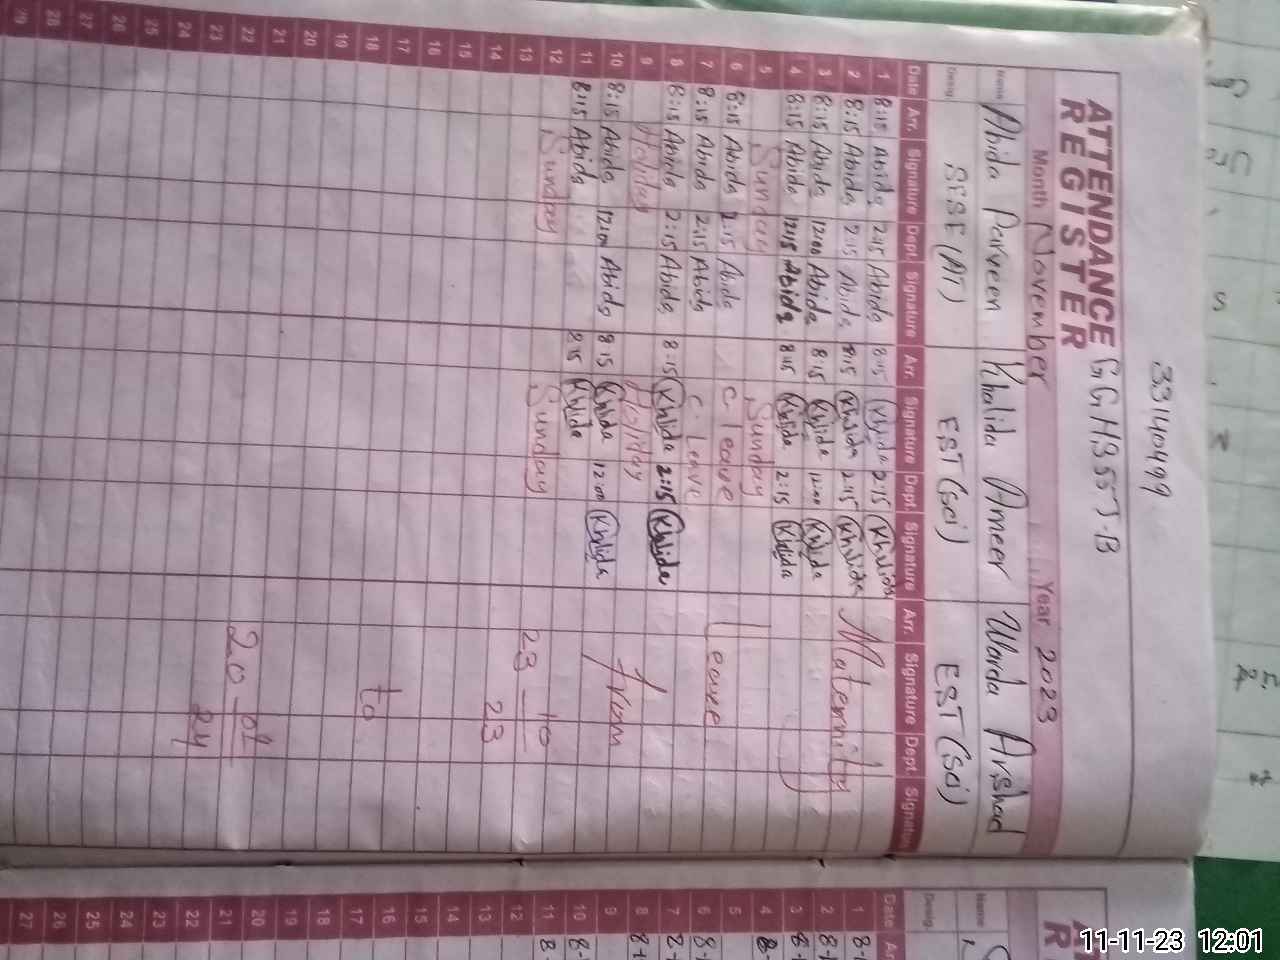 33140499
ATTENDANCE GGHSSTJ-B
REGISTER
Month November Year 2023
Name Abida Parveen Khalida Ameer Warda Arshad
Desig. SESE (AT) EST (sci) EST (sci)
Date Arr. Signature Dept. Signature Arr. Signature Dept. Signature Arr. Signature Dept. Signature
1 8:15 Abida 2:15 Abida 8:15 Khlida 2:15 Khlida
2 8:15 Abida 2:15 Abida 8:15 Khlida 2:15 Khlida Maternity
3 8:15 Abida 12:00 Abida 8:15 Khlida 12:00 Khlida
4 8:15 Abida 12:15 Abida 8:15 Khlida 2:15 Khlida
5 Sunday Sunday
6 8:15 Abida 2:15 Abida C-leave Leave
7 8:15 Abida 2:15 Abida C-Leave
8 8:15 Abida 2:15 Abida 8:15 Khlida 2:15 Khlida
9 Holiday Holiday from
10 8:15 Abida 12:00 Abida 8:15 Khlida 12:00 Khlida
11 8:15 Abida 8:15 Khlida
12 Sunday Sunday 23 10
13 23
14
15
16
17
18 to
19
20
21
22 20 01
23 24
24
25
26
27
28
29
Name
Desig.
Date
1 8
2 8
3 8
4 8
5
6 8
7 8
8 8
9
10 8
11 8
12
13
14
15
16
17
18
19
20
21
22
23
24
25
26
27
11-11-23 12:01